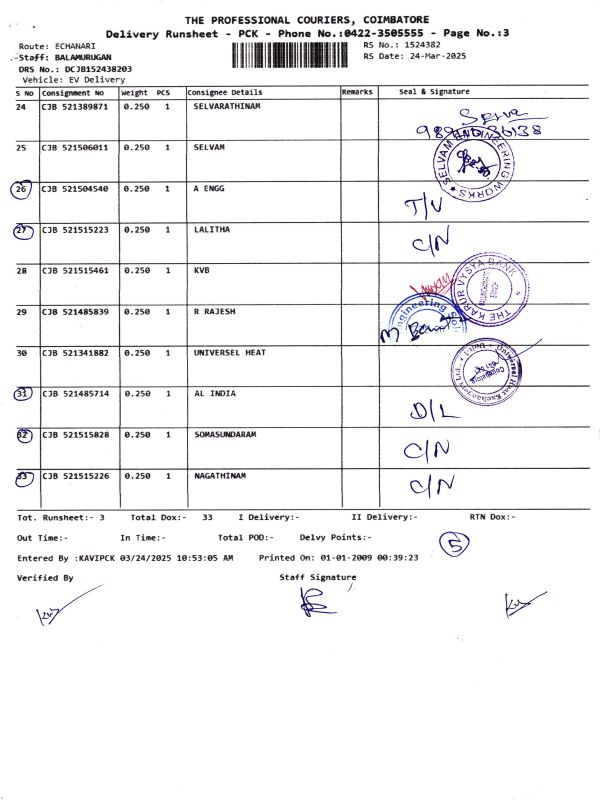 THE PROFESSIONAL COURIERS, COIMBATORE
Delivery Runsheet - PCK - Phone No.:0422-3505555 - Page No.:3
Route: ECHANARI
RS No.: 1524382
Staff: BALAMURUGAN
RS Date: 24-Mar-2025
DRS No.: DCJB152438203
Vehicle: EV Delivery
S No Consignment No Weight PCS Consignee Details Remarks Seal & Signature
24 CJB 521389871 0.250 1 SELVARATHINAM
Selva
25 CJB 521506011 0.250 1 SELVAM
SELVAM ENGINEERING WORKS
26 CJB 521504540 0.250 1 A ENGG
T/V
27 CJB 521515223 0.250 1 LALITHA
C/N
28 CJB 521515461 0.250 1 KVB
THE KARUR VYSYA BANK
29 CJB 521485839 0.250 1 R RAJESH
30 CJB 521341882 0.250 1 UNIVERSEL HEAT
Universal Heat Exchangers Ltd. Unit-I
Coimbatore
31 CJB 521485714 0.250 1 AL INDIA
D/L
32 CJB 521515828 0.250 1 SOMASUNDARAM
C/N
33 CJB 521515226 0.250 1 NAGATHINAM
C/N
Tot. Runsheet:- 3 Total Dox:- 33 I Delivery:- II Delivery:- RTN Dox:-
Out Time:- In Time:- Total POD:- Delvy Points:-
5
Entered By :KAVIPCK 03/24/2025 10:53:05 AM Printed On: 01-01-2009 00:39:23
Verified By Staff Signature